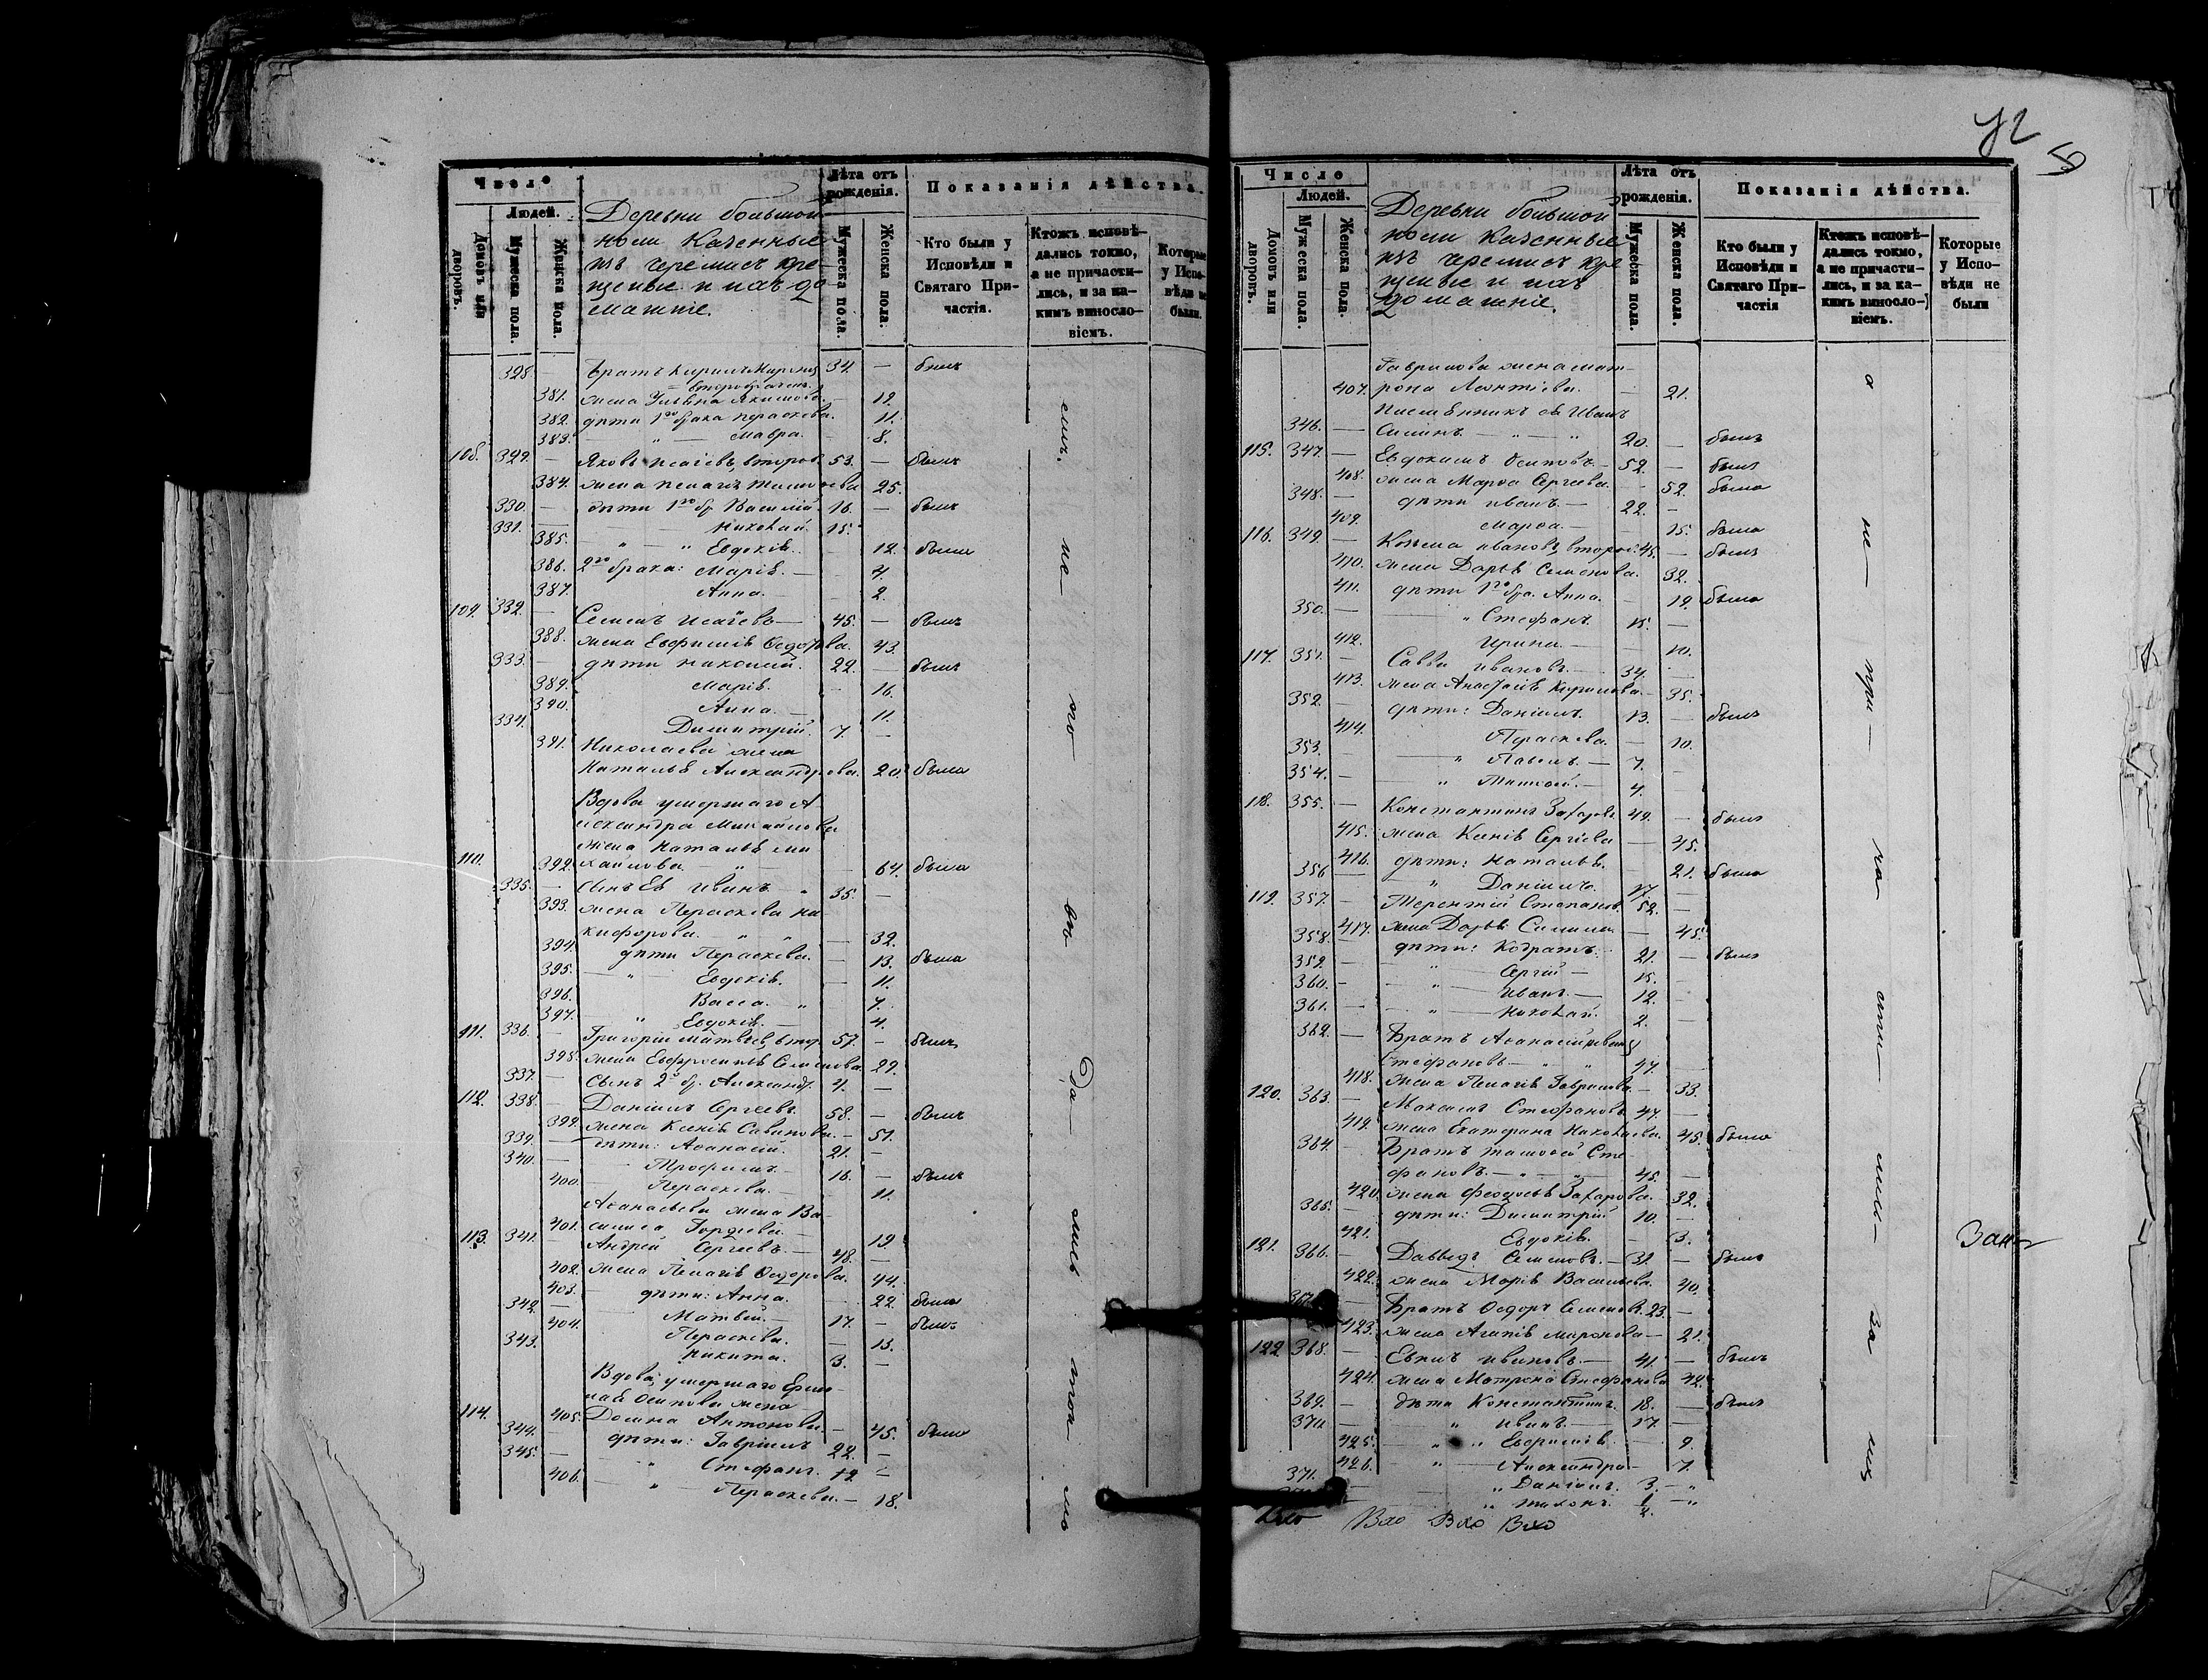 Число
Людей.
Домовъ или дворовъ.
Мужеска пола.
Женска пола.
Деревни большой
ноли Казенные
изъ черемисъ кре
щеные и ихъ до
машніе.
Лѣта отъ рожденія.
Мужеска пола.
Женска пола.
Показанія дѣйства.
Кто были у Исповѣди и Святаго Причастія.
Ктожъ исповѣдались токмо, а не причастились, и за какимъ винословіемъ.
Которые у Исповѣди не были.
328. — Братъ Кирилъ 34. — былъ
второбрачн.
381. жена Ульяна Якимова. — 19.
382. дѣти 1го брака Пераскева. 11.
383. — „ — Мавра. — 8.
108. 329. — Яковъ Исаіевъ, второб. 53. — былъ
384. жена Пелагія 25.
330. — дѣти 1го бр. Василій. 16. — былъ
331. — Николай. 15.
385. — „ — „ Евдокія. — 12. была
386. 2го брака: Марія. — 4.
387. Анна. — 2.
109. 332. — Семенъ Исаіевъ — 45. — былъ
388. жена Евфимія Ѳедорова. 43.
333. — дѣти Николай. 22. — былъ
389. Марія. — 16.
390. Анна. — 11.
334. Димитрій. 7. —
391. Николаева жена
Наталья Александрова. 20. была
Вдова умершаго А
лександра Михайлова
жена Наталья Ми
110. 392. хайлова. — „ — 64. была
335. — сынъ Ея Иванъ — „ 35. —
393. жена Пераскева Ни
кифорова. „ „ — 32.
394. дѣти Пераскева. — 13. была
395. — „ Евдокія. — 11.
396. Васса. — „ 7.
397. — „ Евдокія. — 4.
111. 336. — Григорій Матвѣевъ, втор. 57. — былъ
398. жена Евфросинія Семенова. 29.
337. — сынъ 2го бр. Александр. 4. —
112. 338. — Даніилъ Сергеевъ. 58. — былъ
399. жена Ксенія Савинова. — 51.
339. — дѣти: Аѳанасій. 21. —
340. — Трофимъ. — 16. — былъ
400. — Пераскева. — 11.
Аѳанасьева жена Ва
401. силиса Гордеева. — 19.
113. 341. — Андрей Сергѣевъ. — 48. —
402. жена Пелагія Ѳедорова. 44.
403. дѣти: Анна. 22. была
342. — Матвѣй. — 17. — былъ
404. Пераскева. — 13.
343. Никита. 3. —
Вдова, умершаго Ермо
лая Осипова жена
114. 405. Домна Антонова. — 45. была
344. — дѣти: Гавріилъ 22. —
345. — „ Стефанъ. 19. —
406. „ — Пераскева. — 18.
сихъ. не — ого — въ да — лись тол ло
У2
59
Число
Людей.
Домовъ или дворовъ.
Мужеска пола.
Женска пола.
Деревни большой
ноли Казенные
изъ черемисъ кре
щеные и ихъ
домашніе.
Лѣта отъ рожденія.
Мужеска пола.
Женска пола.
Показанія дѣйства.
Кто были у Исповѣди и Святаго Причастія
Ктожъ исповѣдались токмо, а не причастились, и за какимъ винословіемъ.
Которые у Исповѣди не были
Гаврилова жена Мат
407. рона Леонтіева. — 21.
Племянникъ ея Иванъ
346. — — „ — „ 20. — былъ
115. 347. — Евдокимъ Осиповъ — 52. — былъ
408. жена Марѳа Сергеева. — 52. была
348. — дѣти Иванъ. — 22. —
409. Марѳа. — 15. была
116. 349. — Козьма Ивановъ, второб. 45. — былъ
410. жена Дарья Семенова. 32.
411. дѣти 1го бра. Анна. — 19. была
350. — „ Стефанъ. 15. —
412. Ирина. — 10.
117. 351. — Савва Ивановъ. — 34. —
413. жена Анастасія Кирилова. — 35.
352. — дѣти: Даніилъ. 13. — былъ
414. Пераскева. — 10.
353. — „ Павелъ. — 7.
354. — „ 4.
118. 355. — Константинъ Захаровъ 49. — былъ
415. жена Ксенія Сергѣева — 45.
416. дѣти: Наталья. 21. была
356 — „ Даніилъ. 17.
119. 357. — Терентій Степановъ. 52. —
417. жена Дарья — 45.
358. — дѣти: Кодратъ. 21. — былъ
359. — „ Сергій — 15.
360. — „ Иванъ. — 12.
361. — „ Николай. 2.
362. — Братъ Аѳанасій
Стефановъ — „ 47. —
418. жена Пелагія Гаврилова. — 33.
120. 363. — Максимъ Стефановъ 47. —
419. жена Екатерина Николаева. 45. была
364. — Братъ Тимоѳей Сте
фановъ. — „ — 45. —
420. жена Феодосья Захарова. 32.
365. — дѣти: Димитрій 10. —
421. Евдокія. — 3.
121. 366. — Давыдъ Семеновъ. — 31. — былъ
422. жена Марія Васильева. 40.
367. — Братъ Ѳедоръ Семенов. 23. —
423. жена Агапія Миронова — 21.
122. 368. — Евкилъ Ивановъ. — 41. — былъ
424. жена Матрена Стефанова 42.
369. — дѣти Константинъ. 18. — былъ
370. — „ Иванъ. — 17. —
425. — „ „ Евфимія. — 9.
426. — „ — Александра — 7.
371. „ Даніилъ. 3. — „
„ Тихонъ. 1/2. — „
а не — при — ча сти — лись — за